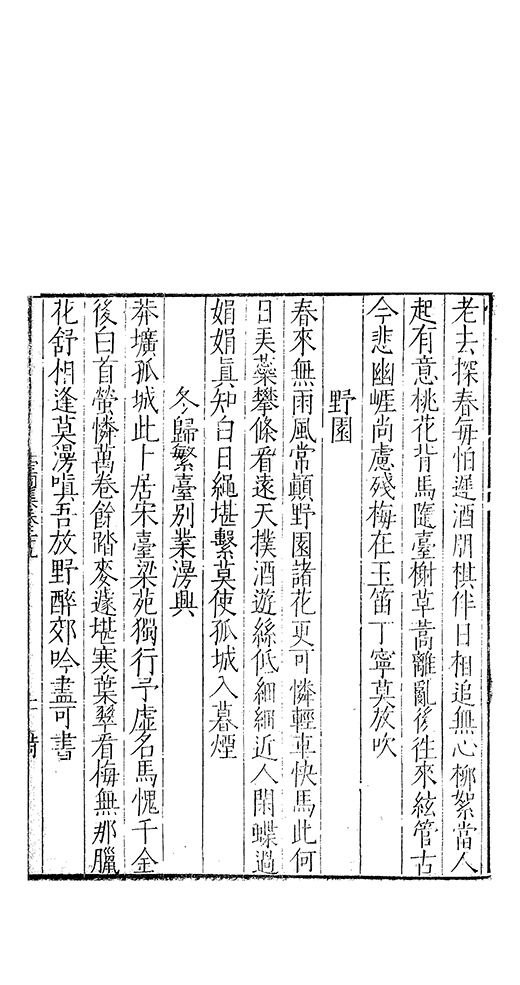 老去探春每怕遲酒朋棋伴日相追無心柳絮當人
起有意桃花背馬隨臺榭草蒿離亂後往來絃管古
今悲幽崕尚慮殘梅在玉笛丁寧莫放吹
野園
春來無雨風常顛野園諸花更可憐輕車快馬此何
日美蘂攀條看遠天撲酒遊絲低細細近人閑蝶過
娟娟真知白日繩堪繫莫使孤城入暮煙
冬歸繁臺別業漫興
莽壙孤城此卜居宋臺梁苑獨行予虛名馬愧千金
後白首螢憐萬卷餘踏麥遽堪寒葉翠看梅無那臘
花舒相逢莫漫嗔吾放野醉郊吟盡可書